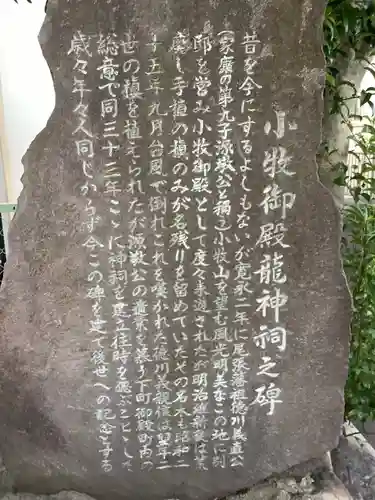 小牧御殿龍神祠之碑
昔を今にするよしもないが寛永二年に尾張藩祖徳川義直公
(家康の第九子源敬公と稱す)小牧山を望む風光明美なこの地に別
邸を営み小牧御殿として度々来遊されたが明治維新後は荒
廃し手植の槙のみが名残りを留めていたその名木も昭和二
十五年九月台風で倒れこれを嘆かれた徳川義親侯は翌年二
世の槙を植えられたが源敬公の遺業を慕う下町御殿町内の
総意で同三十三年こゝに神祠を建立往時を偲ぶことゝした
歳々年々人同じからず今この碑を建て後世への記念とする